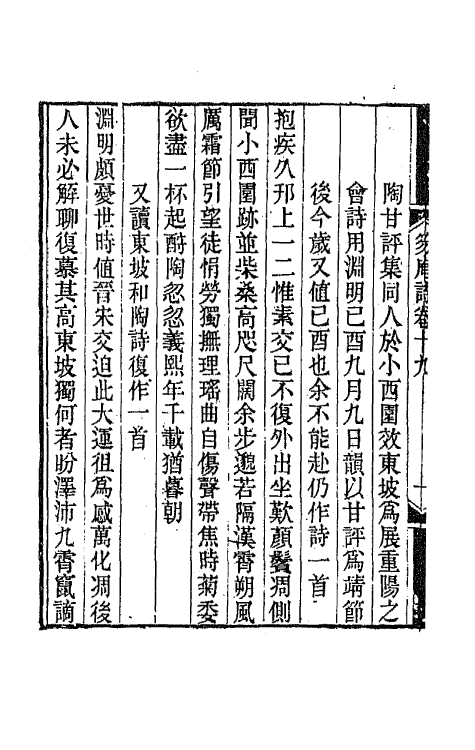 陶甘評集同人於小西園效東坡爲展重陽之
會詩用淵明己酉九月九日韻以甘評爲靖節
後今歲又值己酉也余不能赴仍作詩一首
抱疾久邗上一二惟素交已不復外出坐歎顏鬢凋側
聞小西園跡並柴桑高咫尺闊余步邈若隔漢霄朔風
厲霜節引望徒悁勞獨撫理瑤曲自傷聲帶焦時菊委
欲盡一杯起酹陶忽忽義熙年千載猶暮朝
又讀東坡和陶詩復作一首
淵明頗憂世時值晉宋交迫此大運徂爲感萬化凋後
人未必解聊復慕其高東坡獨何者盼澤沛九霄竄謫
庵詩卷十九